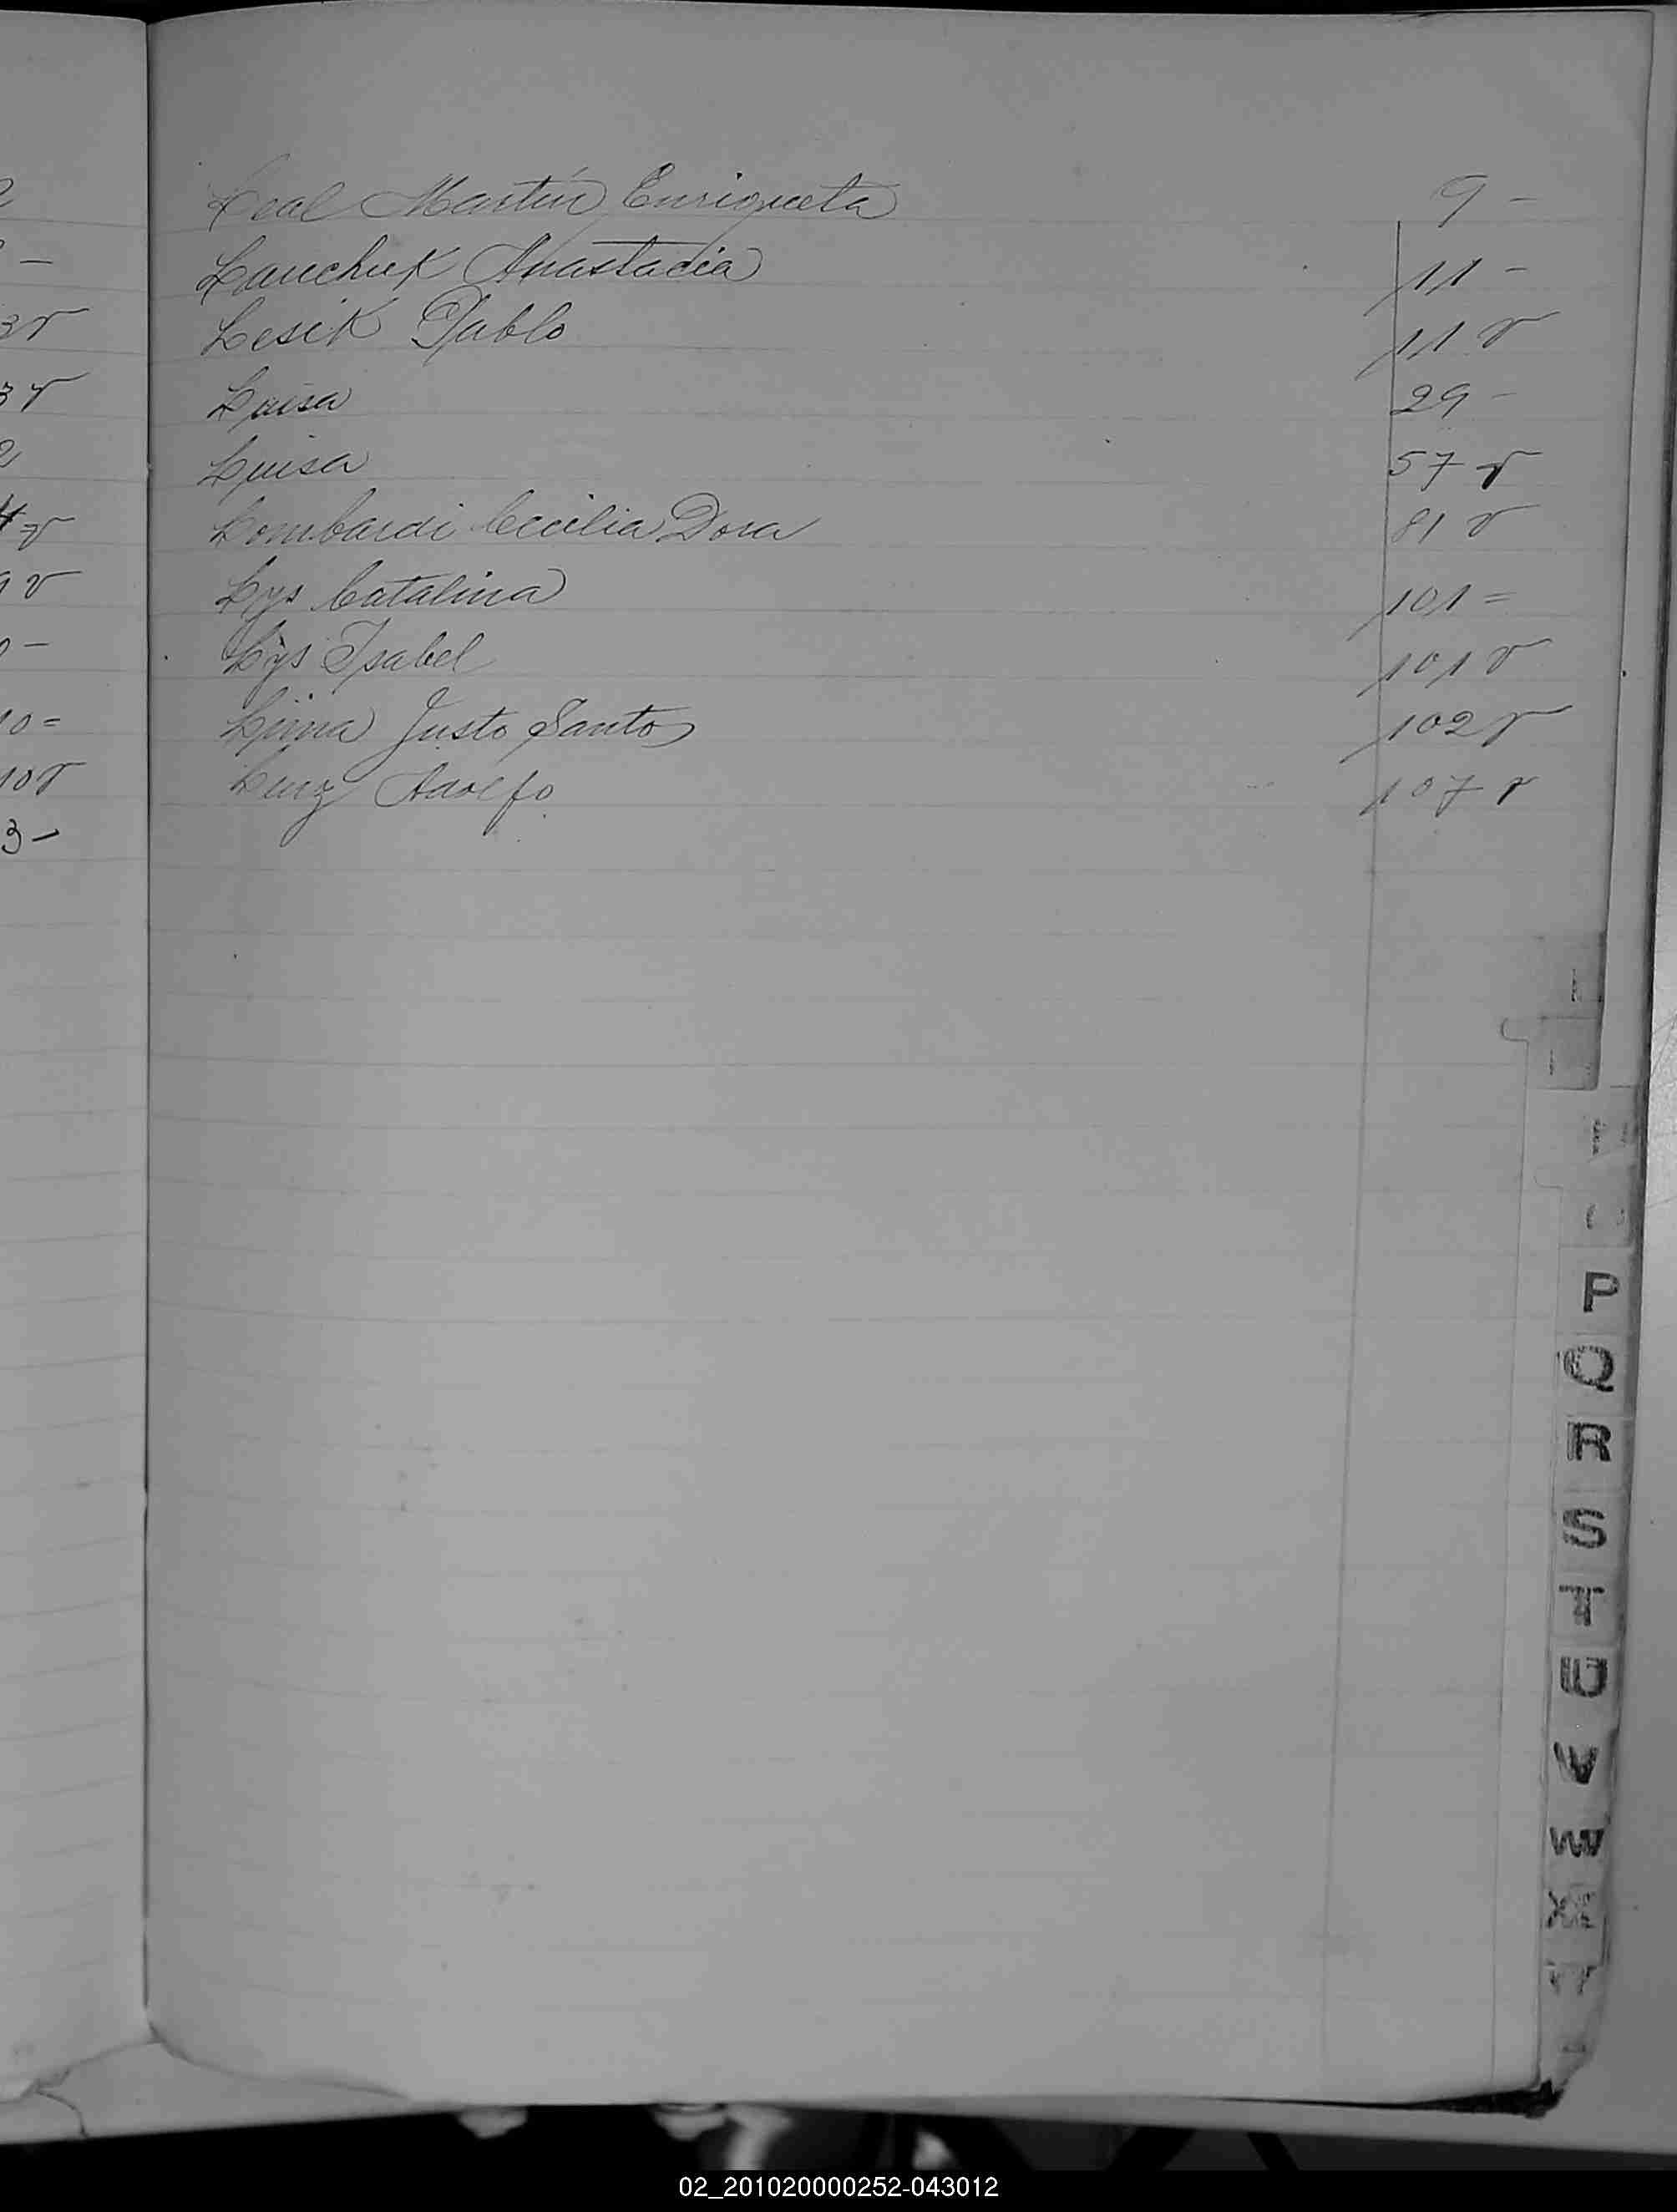 Leal Martín Enriqueta 9 -
Lauchuk Anastacia 11 -
Lesik Pablo 11 v
Luisa 29 -
Luisa 57 v
Lombardi Cecilia Dora 81 v
Lys Catalina 101 =
Lys Isabel 101 v
Justo Santos 102 v
Adolfo 107 v
3 v
3 v
10 =
10 v
3 -
P
Q
R
S
T
U
V
W
X
Y
02_201020000252-043012